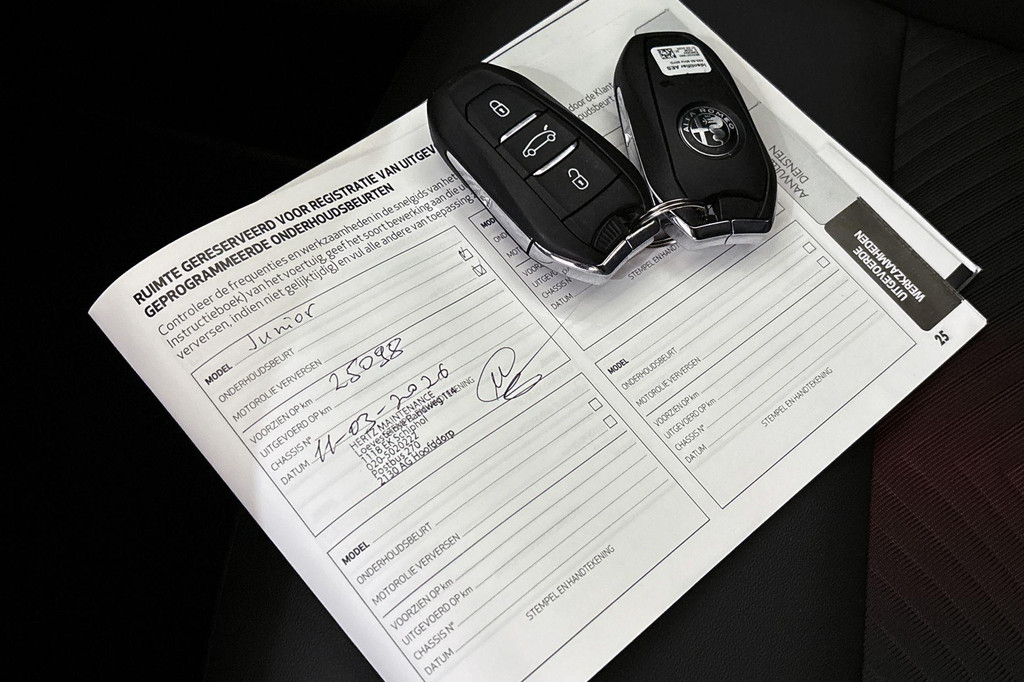 RUIMTE GERESERVEERD VOOR REGISTRATIE VAN UITGEV
GEPROGRAMMEERDE ONDERHOUDSBEURTEN
Controleer de frequenties en werkzaamheden in de snelgids van het
Instructieboek) van het voertuig, geef het soort bewerking aan die u
verversen, indien niet gelijktijdig) en vul alle andere van toepassing
MODEL Junior
ONDERHOUDSBEURT
MOTOROLIE VERVERSEN
VOORZIEN OP km 25098
UITGEVOERD OP km
CHASSIS N°
DATUM 11-03-2026
HERTZ MAINTENANCE
1118 Schiphol
020-5025222
Postbus 270
2130 AG Hoofddorp
MODEL
ONDERHOUDSBEURT
MOTOROLIE VERVERSEN
VOORZIEN OP km
UITGEVOERD OP km
CHASSIS N°
DATUM
STEMPEL EN HANDTEKENING
door de Klan
oudsbeurt
CHASSIS
DATUM
STEMPEL EN HANDTEKENING
MODEL
ONDERHOUDSBEURT
MOTOROLIE VERVERSEN
VOORZIEN OP km
UITGEVOERD OP km
CHASSIS N°
DATUM
STEMPEL EN HANDTEKENING
AANVULL
DIENSTEN
UITGEVOERDE
WERKZAAMHEDEN
25
Identifier AES
ALFA ROMEO